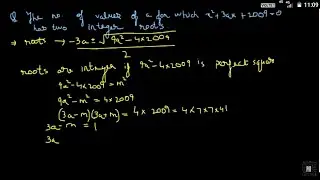 11:09
Q The no. of values of a for which x² + 3ax + 2009 = 0
has two integer roots
→ roots → -3a ± √9a² - 4×2009
2
roots are integer if 9a² - 4×2009 is perfect square
9a² - 4×2009 = m²
9a² - m² = 4×2009
(3a-m)(3a+m) = 4×2009 = 4×7×7×41
3a - m = 1
3a